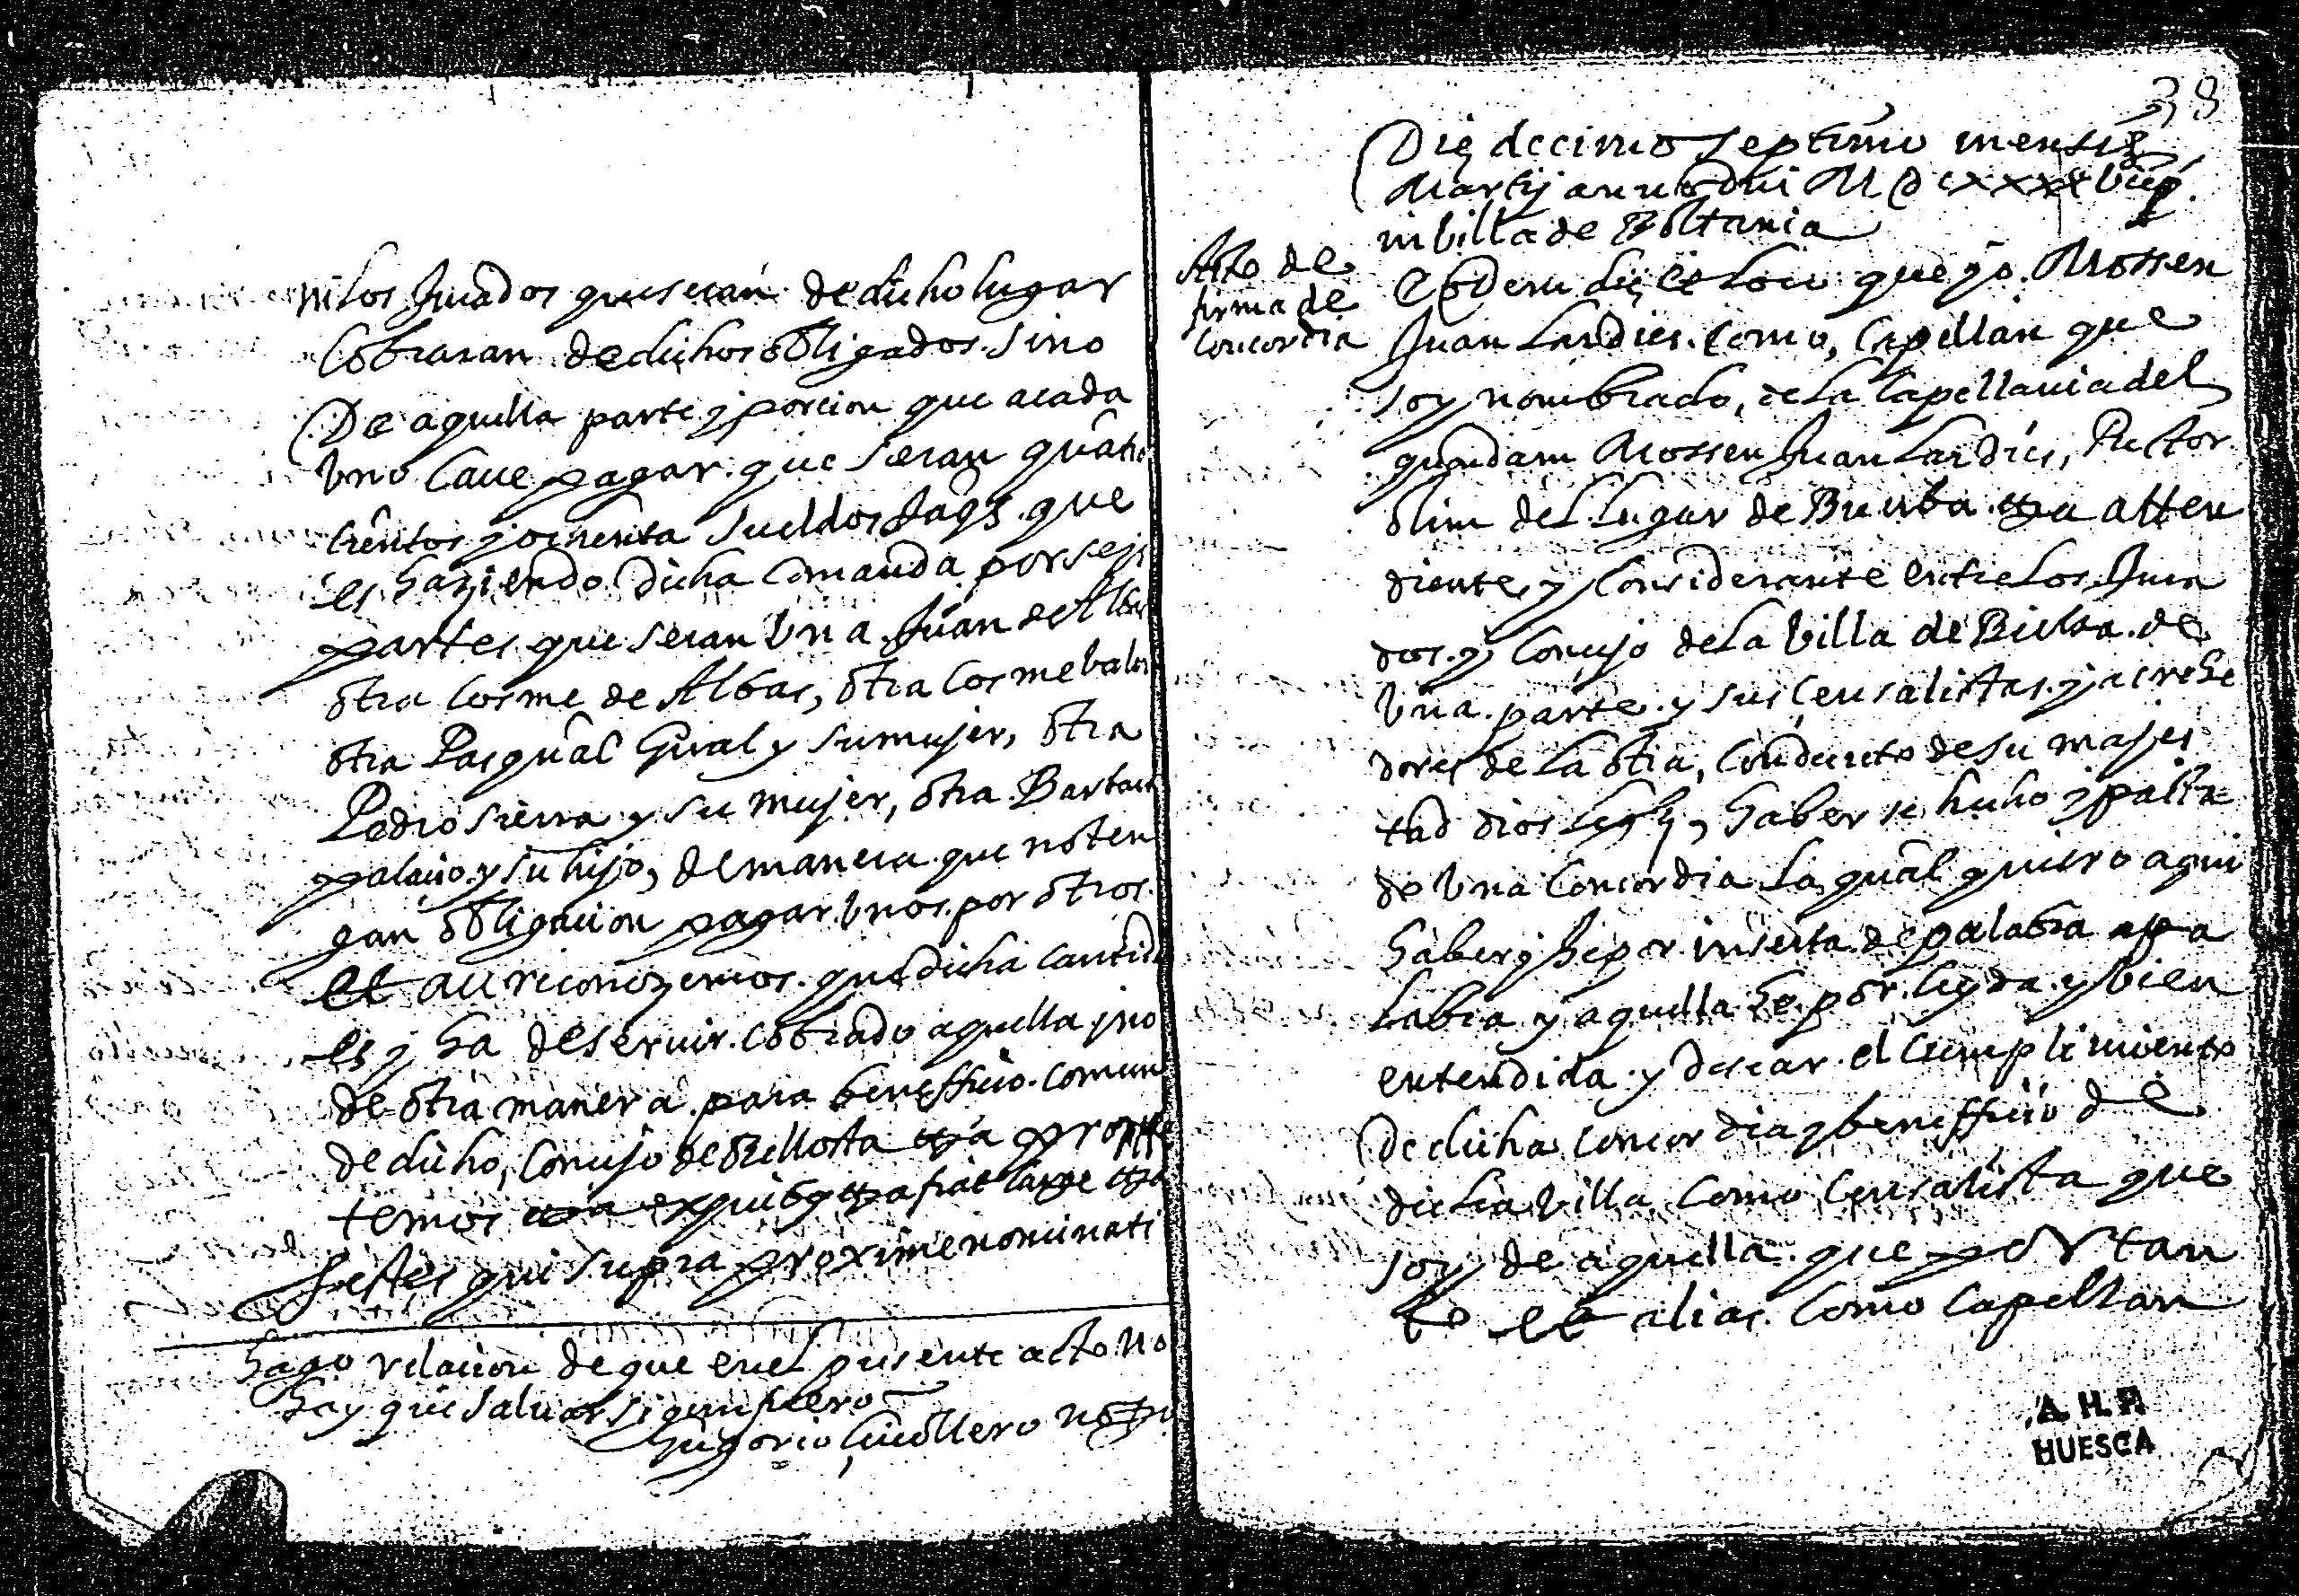 ni los Jurados que seran de dicho lugar
Cobraran de dichos obligados sino
De aquella parte y porcion que a cada
vno caue pagar que seran quatro
cientos y ochenta sueldos Jaqs que
es haziendo dicha comanda por seys
partes que seran vna Juan de Albas
otra Cosme de Albas, otra Cosme
otra Pasqual Gual y su mujer, otra
Pedro Sierra y su mujer, otra
palacio y su hijo, de manera que no ten
gan obligacion pagar vnos por otros
et au reconozemos que dicha cantid
es y ha de seruir cobrado aquella y no
de otra manera para benefficio comun
de dicho Concejo de
temos fiat large
Testes qui supra proxime nominati
hago relacion de que en el presente acto no
hay que saluar
Gregorio notro
38
Die decimo septimo mensis
Martij anno dni M D CXXXX
in villa de Boltania
Acto de
firma de
Concordia
Eodem die et loco que yo Mossen
Juan Lardies como Capellan que
soy nombrado, de la Capellania del
quondam Mossen Juan Lardies, Rector
olim del lugar de atten
diente y considerante entre los Jura
dos y Concejo de la villa de Bielsa de
vna parte y sus Censalistas y acrehe
dores de la otra, con decreto de su majes
tad dios haber se hecho y pacta
do vna Concordia la qual quiero aqui
haber y he por inserta de palabra a pa
labra y aquella he por leyda y bien
entendida y desear el cumplimiento
De dicha concordia y benefficio de
dicha villa como Censalista que
soy de aquella que por tan
to et alias como Capellan
A. H. P.
HUESCA